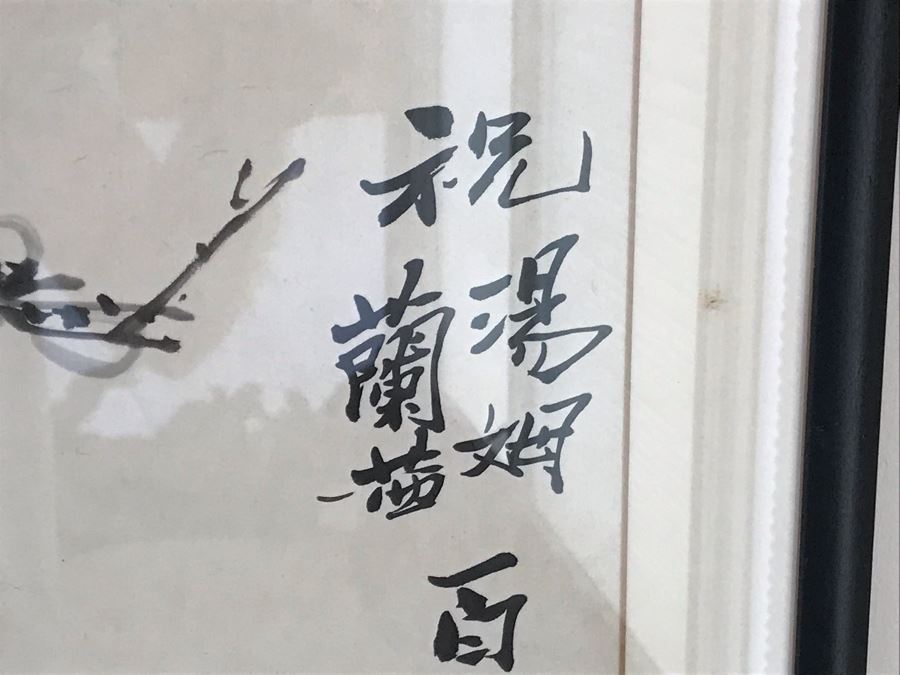 祝
湯姆
蘭茜
百